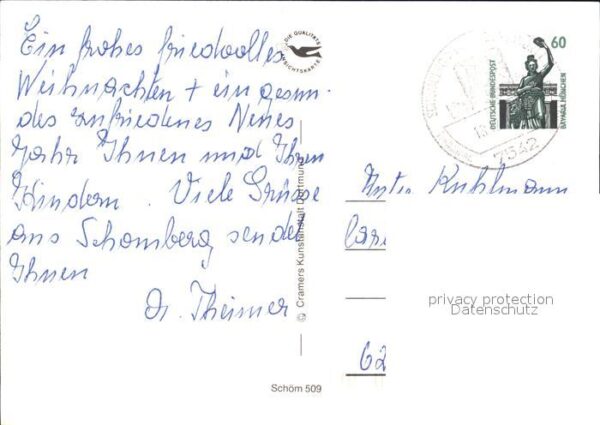 Ein frohes friedvolles
Weihnachten + ein gesun-
des zufriedenes Neues
Jahr Ihnen und Ihren
Kindern. Viele Grüsse
aus Schömberg sendet
Ihnen
Dr. Theimer
DIE QUALITÄTS
ANSICHTSKARTE
© Cramers Kunstanstalt Dortmund
Schöm 509
60
DEUTSCHE BUNDESPOST
BAVARIA MÜNCHEN
7542
Kuhlmann
privacy protection
Datenschutz
62